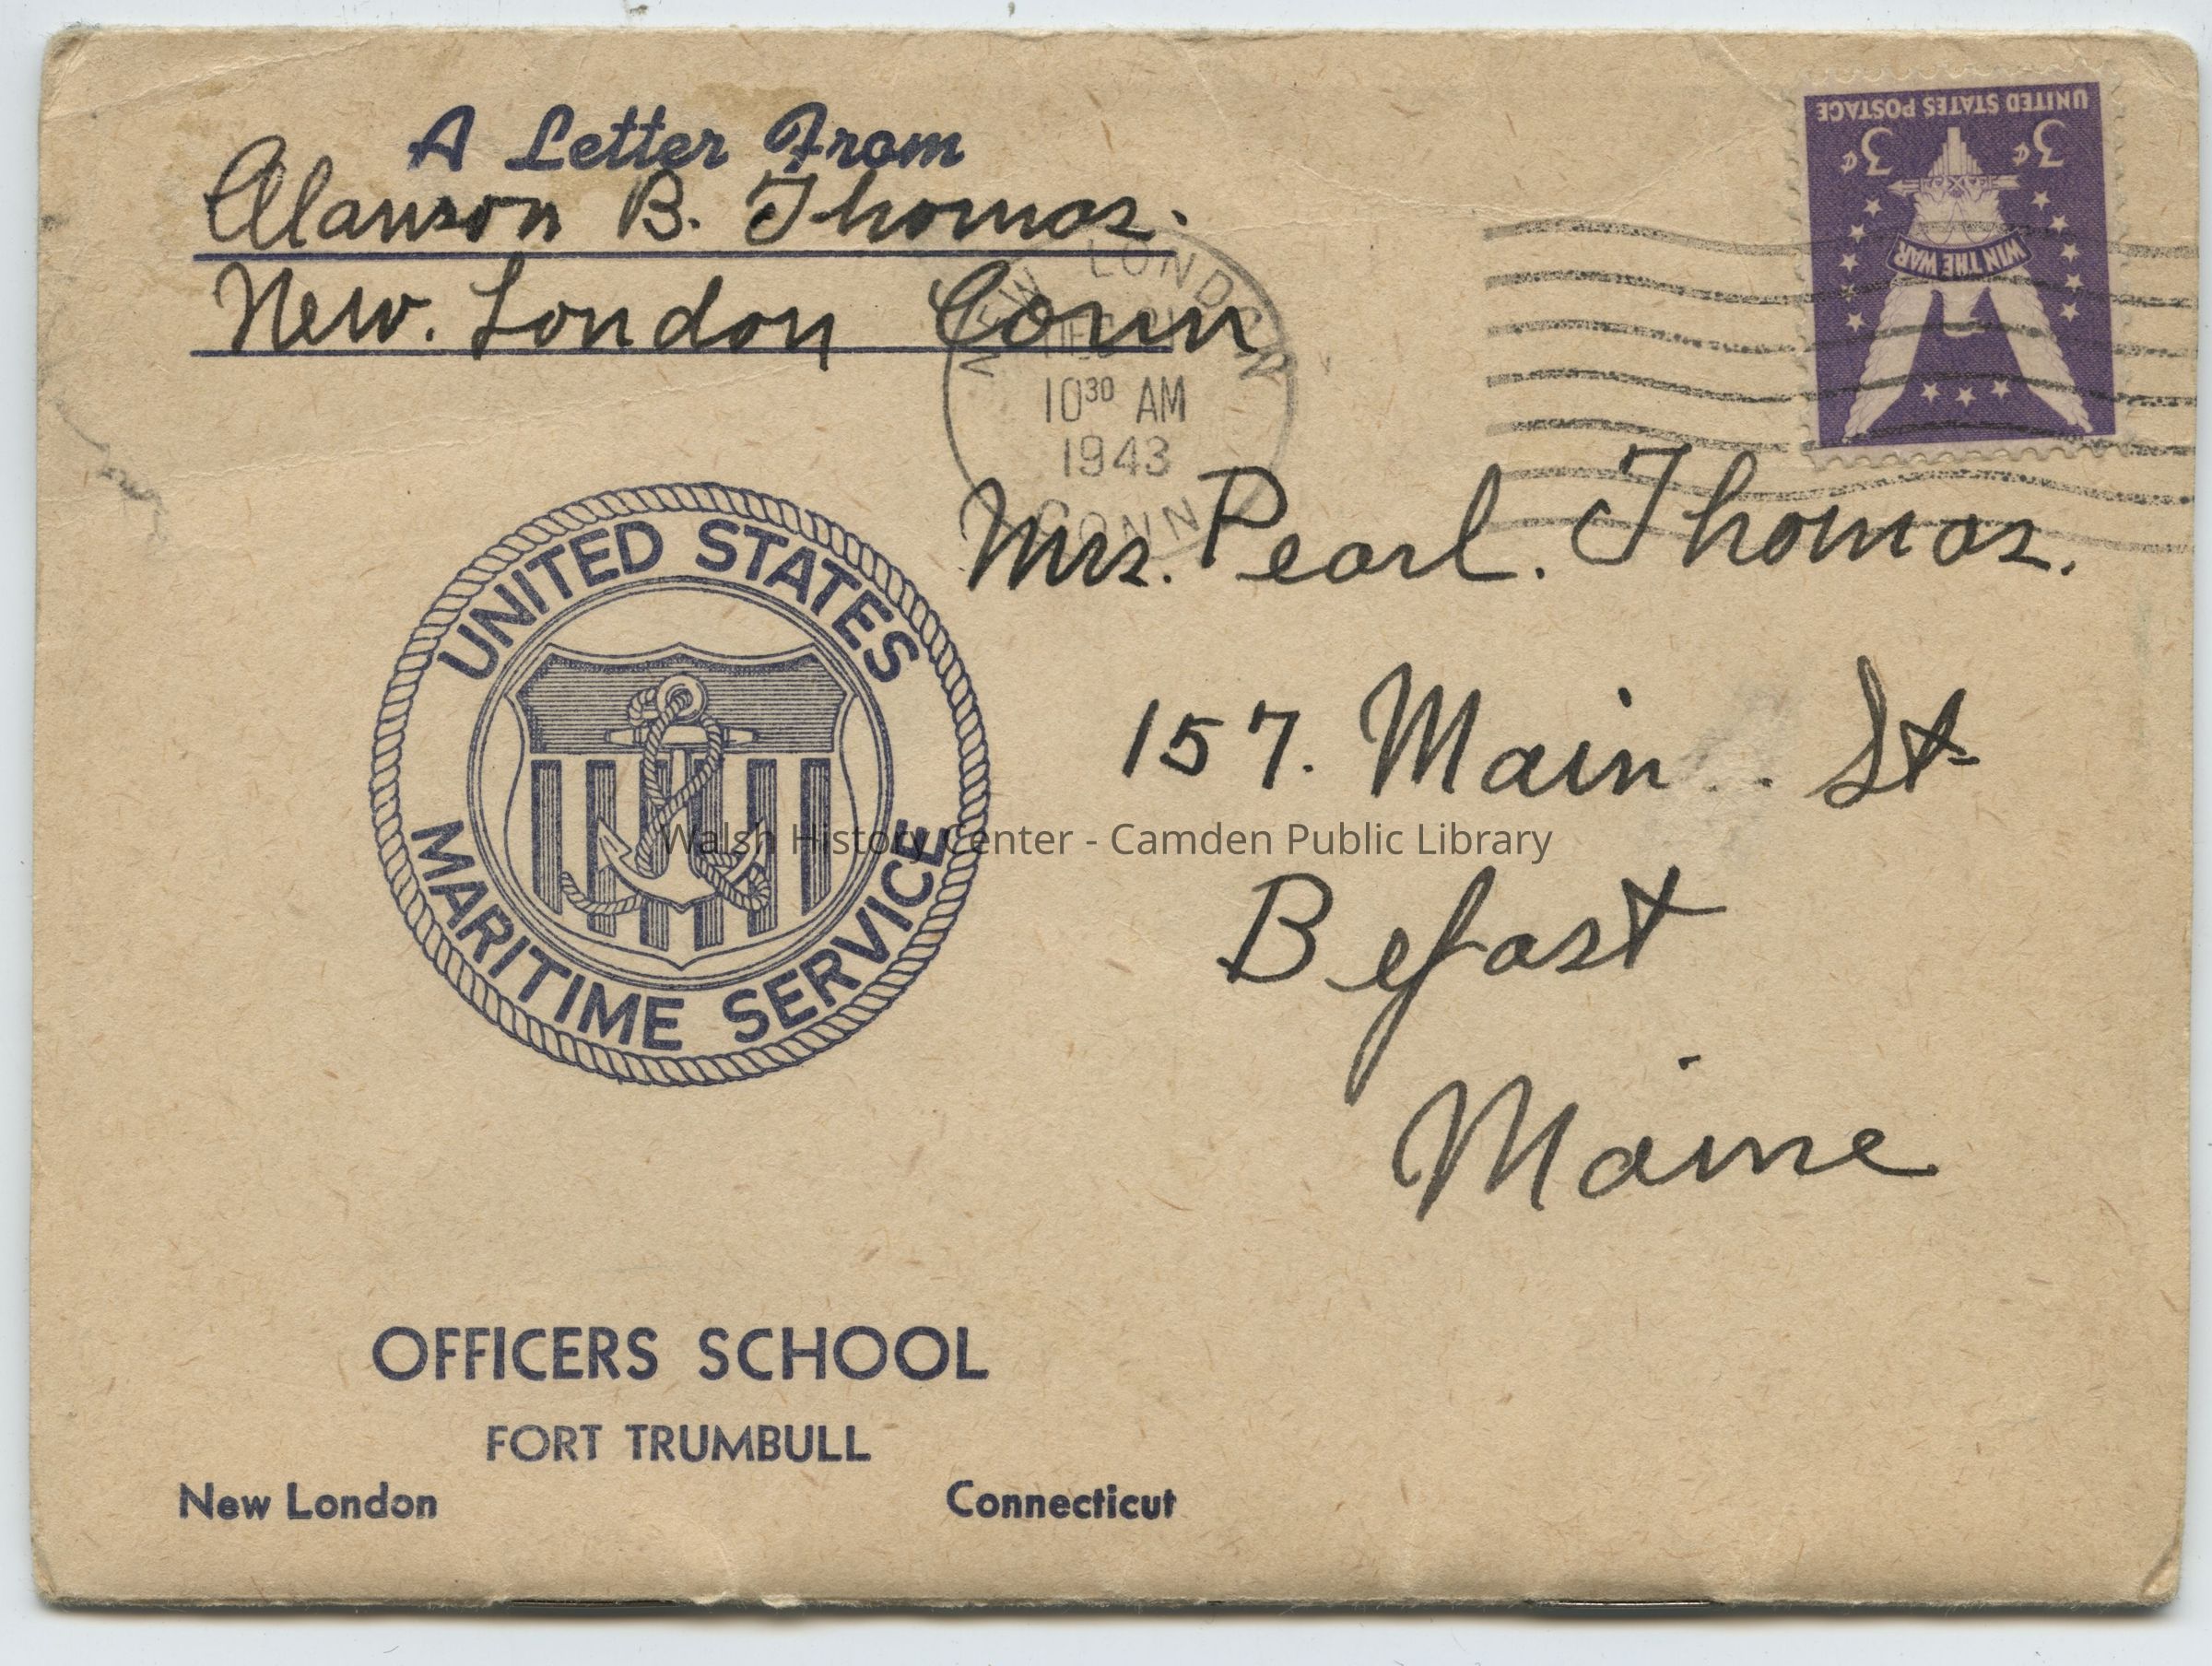 A Letter From
Alanson B. Thomas.
New. London Conn
NEW LONDON
10 30 AM
1943
CONN
UNITED STATES POSTAGE
3¢ 3¢
WIN THE WAR
Mrs. Pearl. Thomas.
157. Main . St
Befast
Maine
UNITED STATES
MARITIME SERVICE
Walsh History Center - Camden Public Library
OFFICERS SCHOOL
FORT TRUMBULL
New London Connecticut